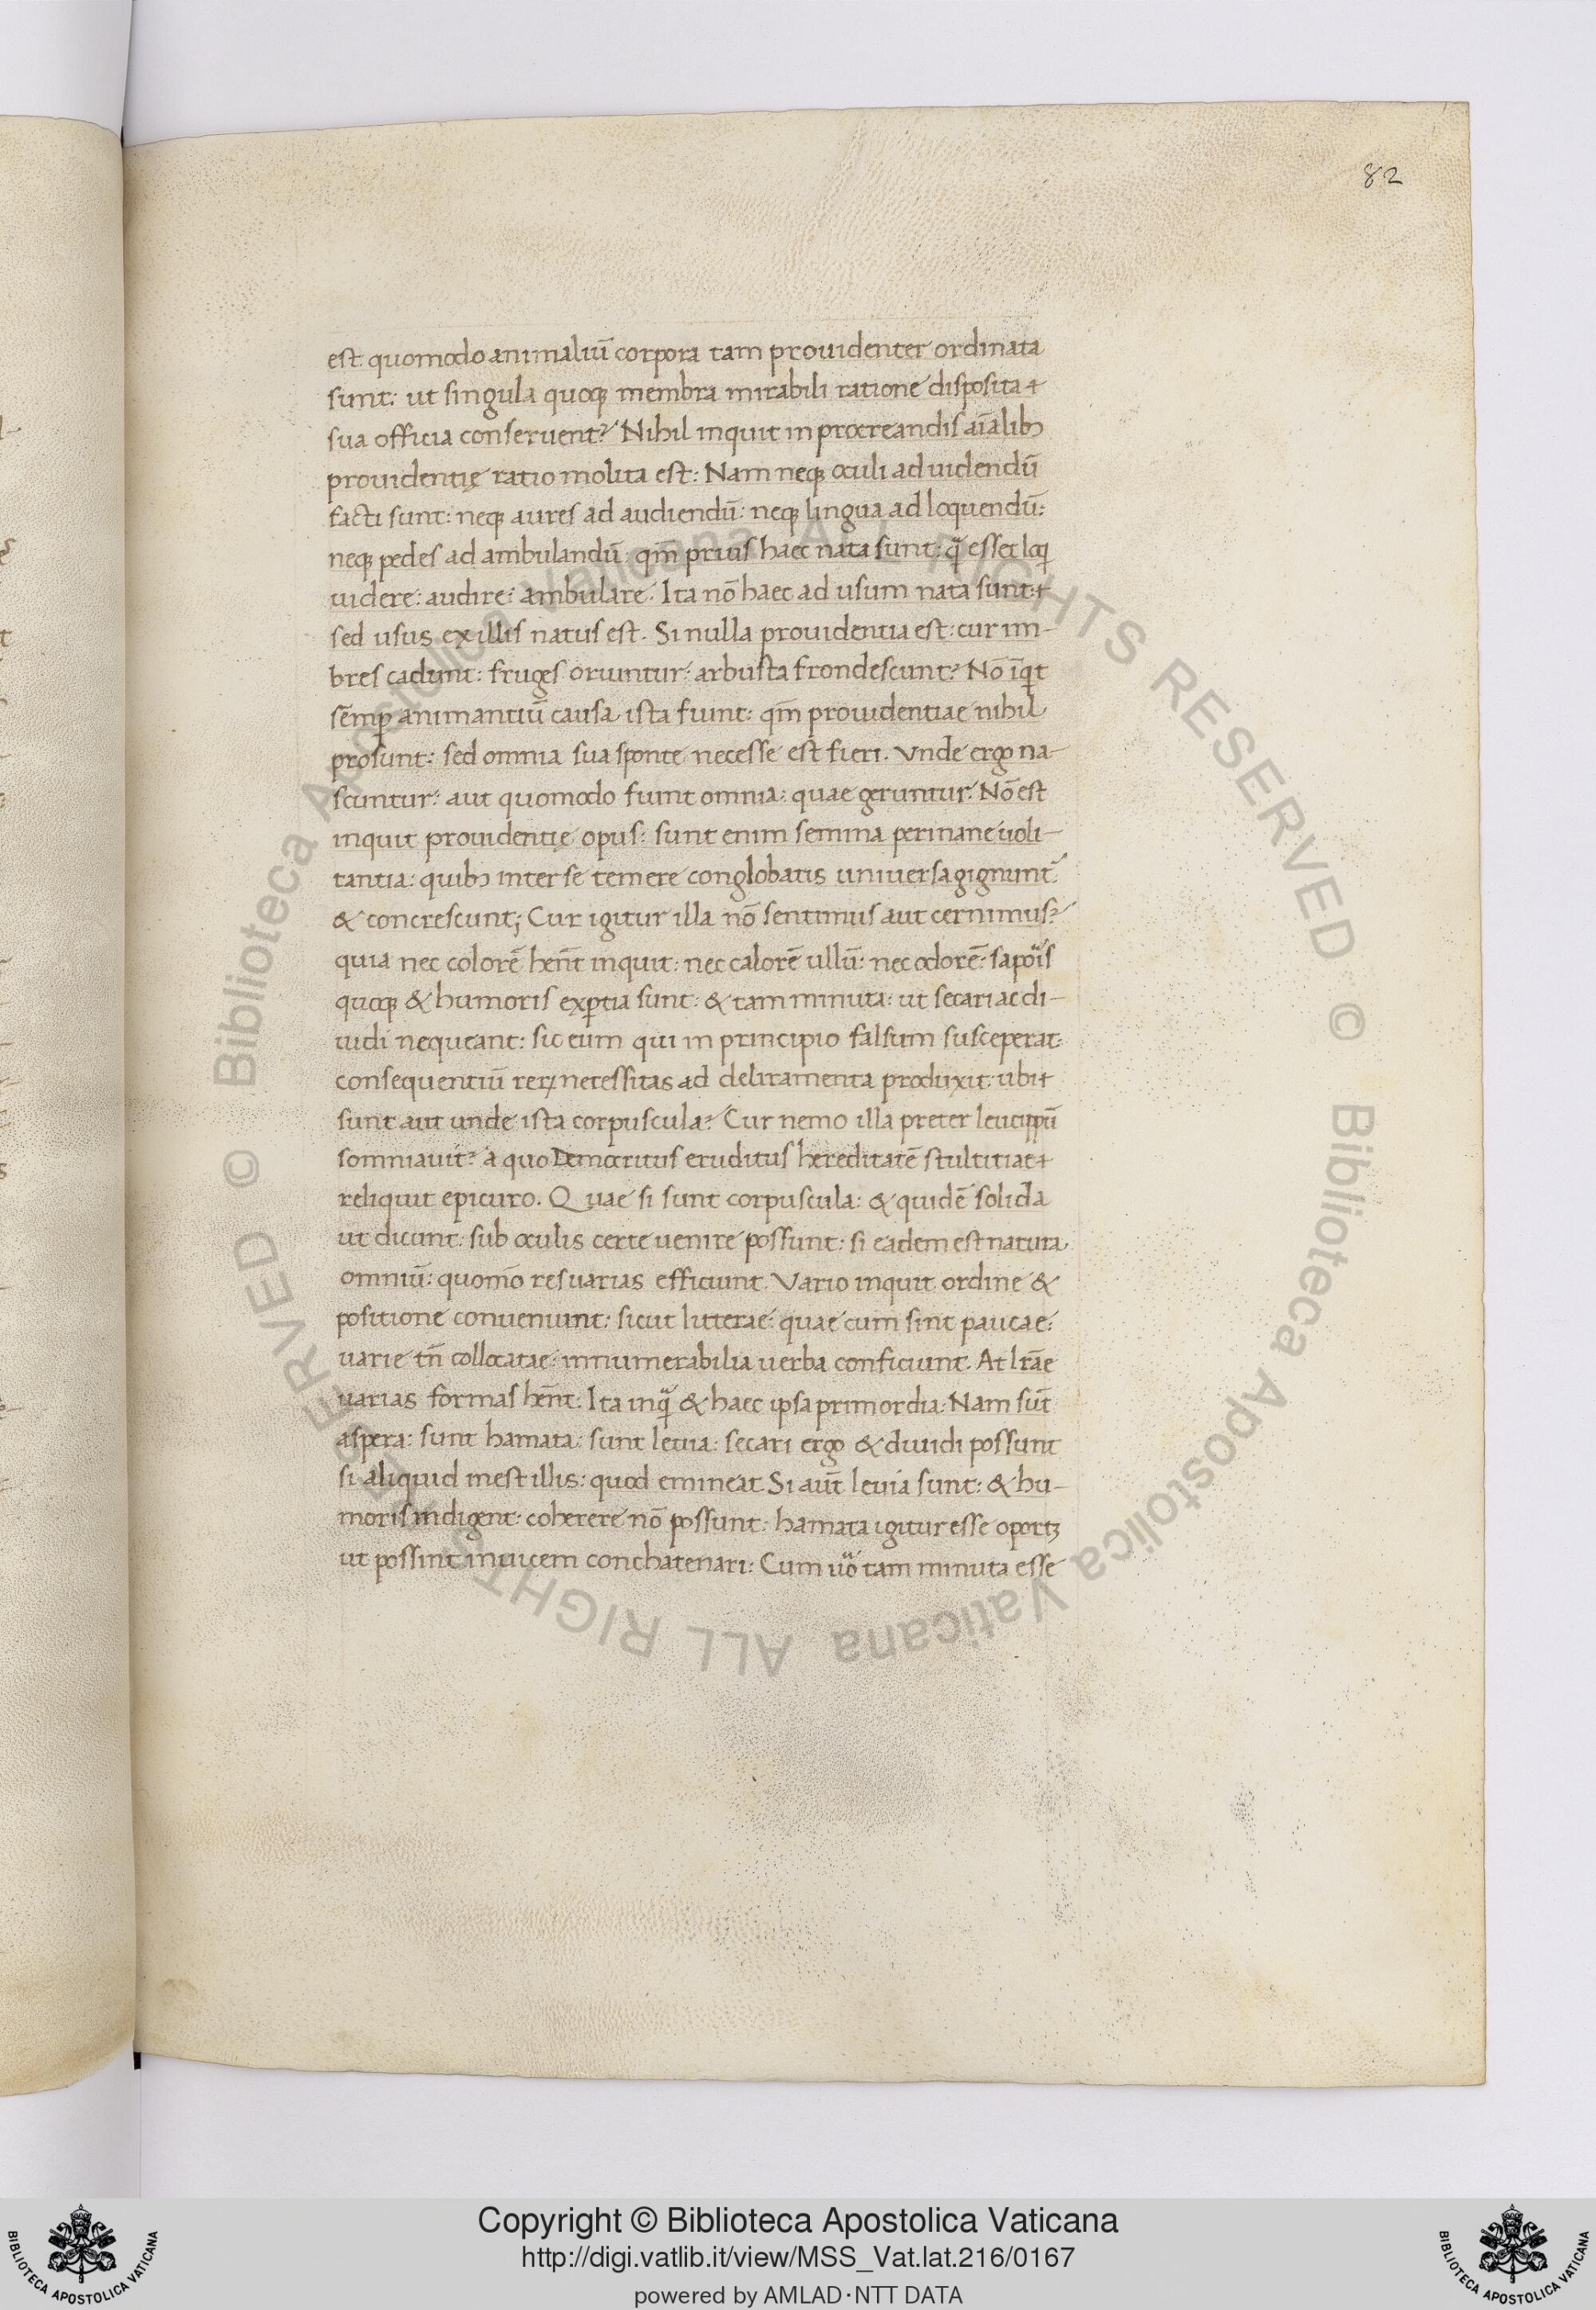 82
est quomodo animaliū corpora tam prouidenter ordinata
sunt: ut singula quoqꝫ membra mirabili ratione disposita
sua officia conseruent? Nihil inquit in procreandis aīalibꝫ
prouidentię ratio molita est: Nam neqꝫ oculi ad uidendū
facti sunt: neqꝫ aures ad audiendū: neqꝫ lingua ad loquendū:
neqꝫ pedes ad ambulandū: qm̄ prius haec nata sunt: q̄ esset loqi
uidere: audire: ambulare. Ita nō haec ad usum nata sunt:
sed usus ex illis natus est. Si nulla prouidentia est: cur im-
bres cadunt: fruges oriuntur: arbusta frondescunt? Nō īqt
semꝑ animantiū causa ista fiunt: qm̄ prouidentiae nihil
prosunt: sed omnia sua sponte necesse est fieri. Vnde ergo na-
scuntur: aut quomodo fiunt omnia: quae geruntur. Nō est
inquit prouidentię opus: sunt enim semina per inane uoli-
tantia: quibꝫ inter se temere conglobatis uniuersa gignunt᷑
& concrescunt; Cur igitur illa nō sentimus aut cernimus?
quia nec colorē hēnt inquit: nec calorē ullū: nec odorē: sapoᷓis
quoqꝫ & humoris exꝑtia sunt: & tam minuta: ut secari ac di-
uidi nequeant: sic eum qui in principio falsum susceperat:
consequentiū reꝝ necessitas ad deliramenta produxit: ubi
sunt aut unde ista corpuscula? Cur nemo illa preter leucippū
somniauit? a quo Democritus eruditus hereditatē stultitiae
reliquit epicuro. Quae si sunt corpuscula: & quidē solida
ut dicunt: sub oculis certe uenire possunt: si eadem est natura
omniū: quomō res uarias efficiunt. Vario inquit ordine &
positione conueniunt: sicut litterae: quae cum sint paucae:
uarie tn̄ collocatae: innumerabilia uerba conficiunt. At lr̄ae
uarias formas hēnt: Ita inqᷓ & haec ipsa primordia: Nam sūt
aspera: sunt hamata: sunt leuia: secari ergo & diuidi possunt
si aliquid inest illis: quod emineat Si aūt leuia sunt: & hu-
moris indigent: coherere nō possunt: hamata igitur esse oportꝫ
ut possint inuicem conchatenari: Cum uᷓo tam minuta esse
© Biblioteca Apostolica Vaticana ALL RIGHTS RESERVED © Biblioteca Apostolica Vaticana ALL RIGHTS RESERVED
Copyright © Biblioteca Apostolica Vaticana
http://digi.vatlib.it/view/MSS_Vat.lat.216/0167
powered by AMLAD·NTT DATA
BIBLIOTECA APOSTOLICA VATICANA
BIBLIOTECA APOSTOLICA VATICANA